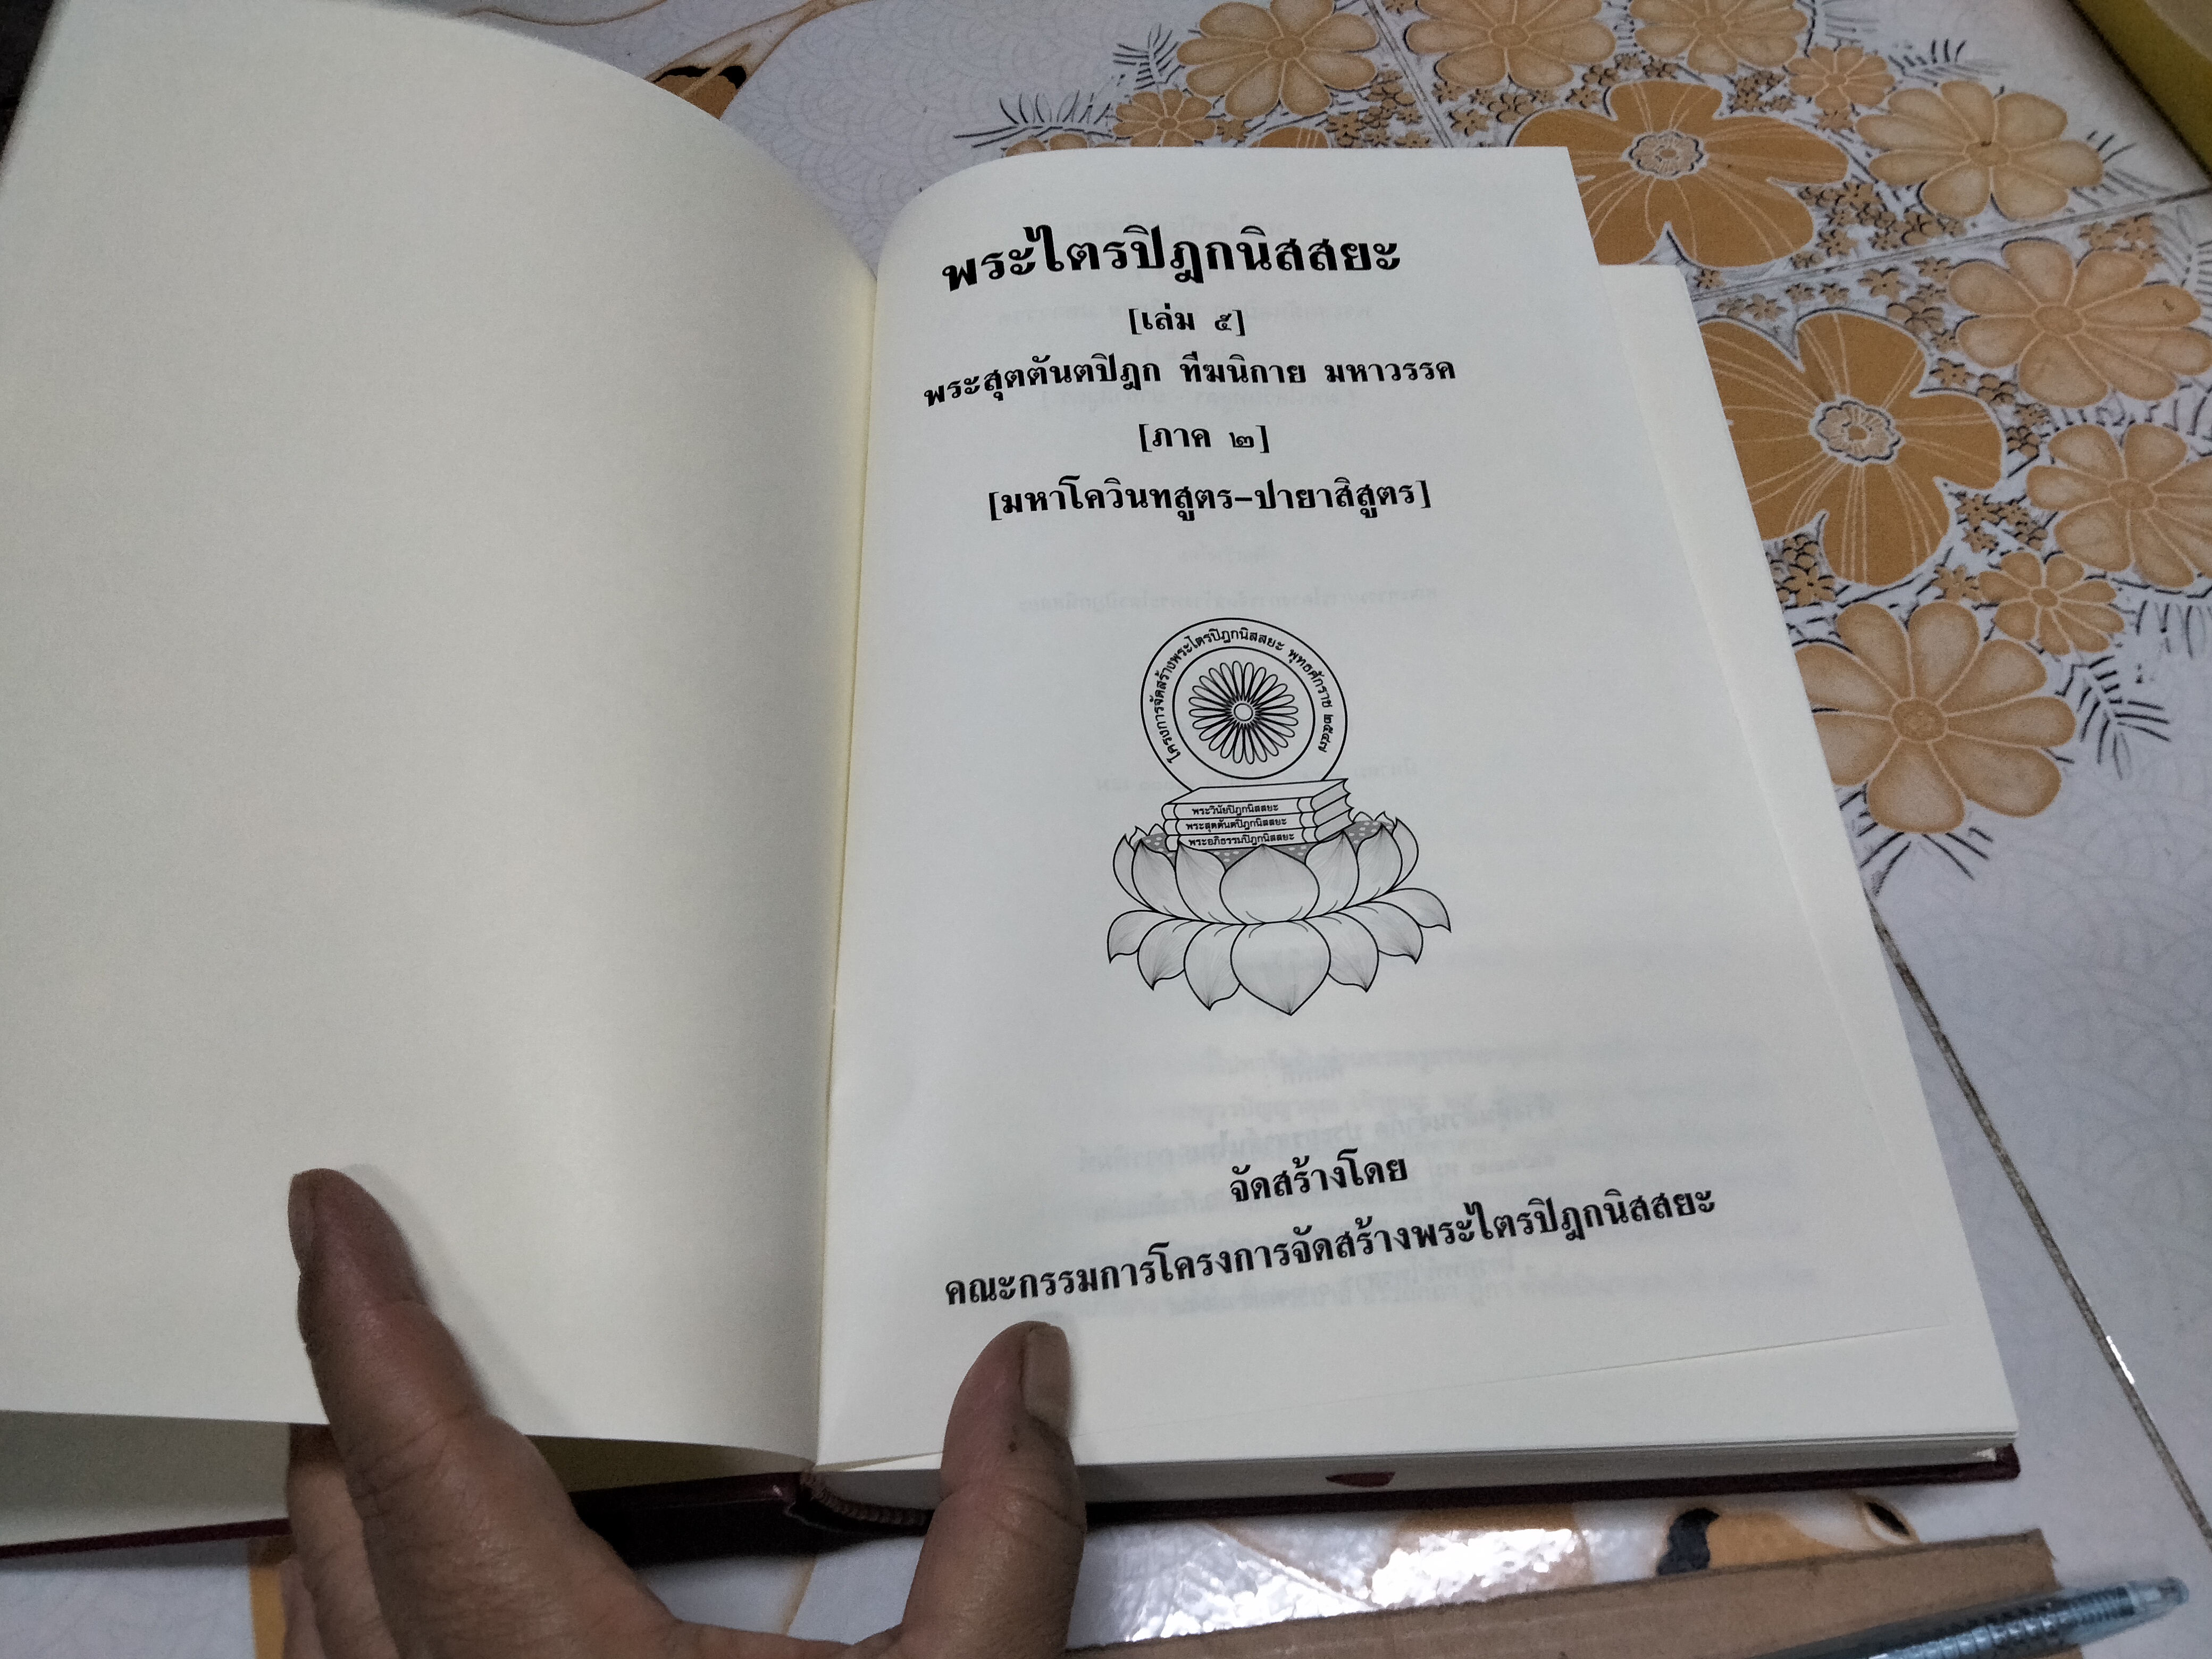 พระไตรปิฎกนิสสยะ
[เล่ม ๕]
พระสุตตันตปิฎก ทีฆนิกาย มหาวรรค
[ภาค ๒]
[มหาโควินทสูตร-ปายาสิสูตร]
โครงการจัดสร้างพระไตรปิฎกนิสสยะ พุทธศักราช ๒๕๔๗
พระวินัยปิฎกนิสสยะ
พระสุตตันตปิฎกนิสสยะ
พระอภิธรรมปิฎกนิสสยะ
จัดสร้างโดย
คณะกรรมการโครงการจัดสร้างพระไตรปิฎกนิสสยะ